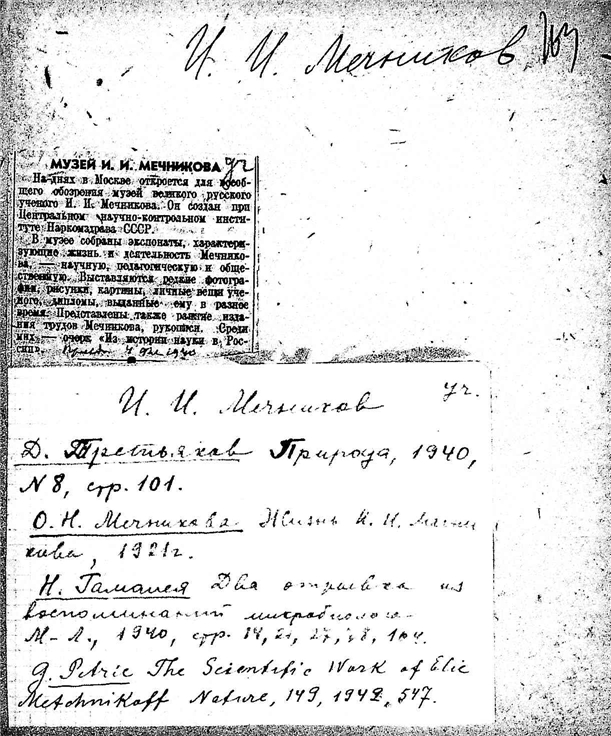 И. И. Мечников
МУЗЕЙ И. И. МЕЧНИКОВА уч
На-днях в Москве откроется для всеоб-
щего обозрения музей великого русского
ученого И. И. Мечникова. Он создан при
Центральном научно-контрольном инсти-
туте Наркомздрава СССР.
В музее собраны экспонаты, характери-
зующие жизнь и деятельность Мечнико-
ва, — научную, педагогическую и обще-
ственную. Выставляются редкие фотогра-
фии, рисунки, картины, личные вещи уче-
ного, дипломы, выданные ему в разное
время. Представлены также ранние изда-
ния трудов Мечникова, рукописи. Среди
них — очерк «Из истории науки в Рос-
сии».
1940
И. И. Мечников уч.
Д. Третьяков Природа, 1940,
N 8, стр. 101.
О. Н. Мечникова Жизнь И. И. Мечни
кова, 1921г.
Н. Гамалея Два отрывка из
воспоминаний микробиолога
М-Л., 1940, стр. 14, 21, 27,
G. Petrie The Scientific Work of Elie
Metchnikoff Nature, 149, 1942, 547.